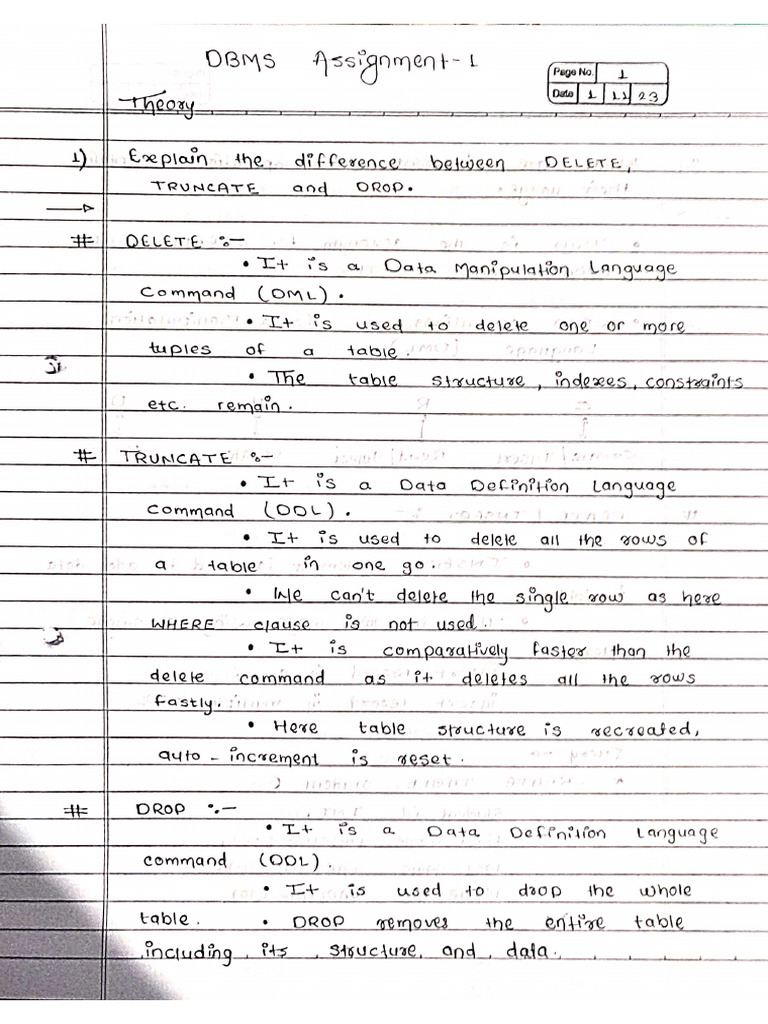 DBMS Assignment-1
Page No. 1
Date 1 11 23
Theory
1) Explain the difference between DELETE,
TRUNCATE and DROP.
→
# DELETE :-
• It is a Data Manipulation Language
Command (DML).
• It is used to delete one or more
tuples of a table.
• The table structure, indexes, constraints
etc. remain.
# TRUNCATE :-
• It is a Data Definition Language
Command (DDL).
• It is used to delete all the rows of
a table in one go.
• We can't delete the single row as here
WHERE clause is not used.
• It is comparatively faster than the
delete command as it deletes all the rows
fastly.
• Here table structure is recreated,
auto-increment is reset.
# DROP :-
• It is a Data Definition Language
command (DDL).
• It is used to drop the whole
table. • DROP removes the entire table
including its structure and data.